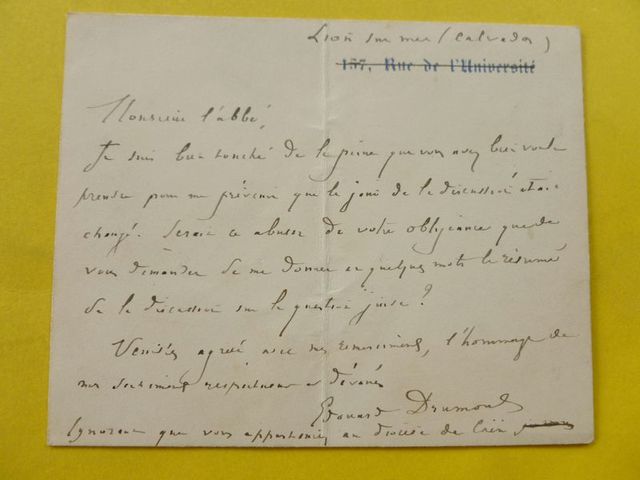 Lion sur mer (Calvados)
157, Rue de l'Université
Monsieur l'abbé,
Je suis bien touché de la peine que vous avez bien voulu
prendre pour me prévenir que le jour de la discussion était
changé. Serait ce abuser de votre obligeance que de
vous demander de me donner en quelques mots le résumé
de la discussion sur la question juive ?
Veuillez agréer avec mes remerciements, l'hommage de
mes sentiments respectueux et dévoués
Edouard Drumont
Ignorant que vous apparteniez au diocèse de Caen